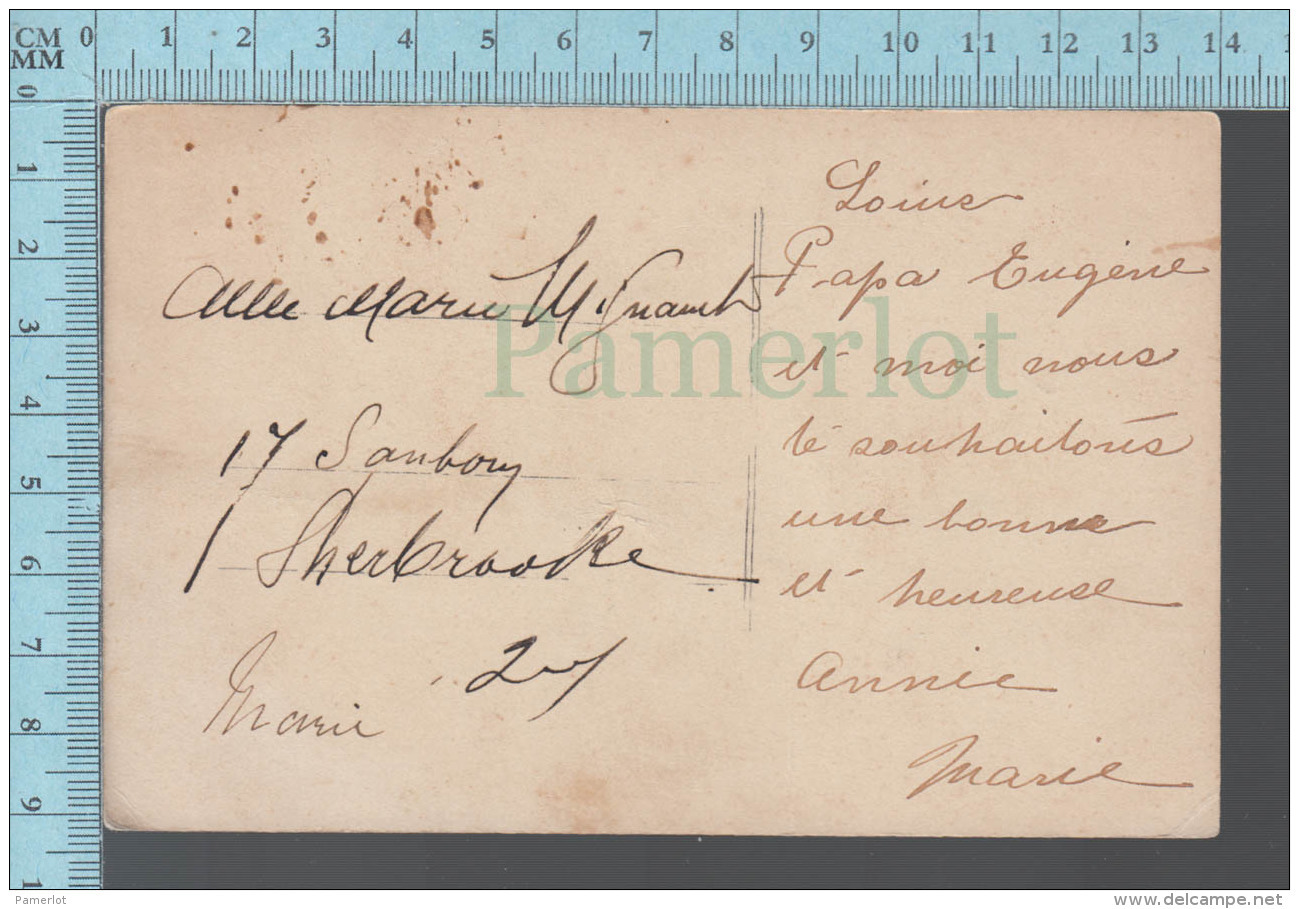 CM 0 1 2 3 4 5 6 7 8 9 10 11 12 13 14 1
MM
0 1 2 3 4 5 6 7 8 9 1
Mlle Marie Mignault
17 Sanborn
Sherbrooke
Marie
Louise
Papa Eugène
et moi nous
te souhaitons
une bonne
et heureuse
Année
Marie
Pamerlot
Pamerlot
www.delcampe.net